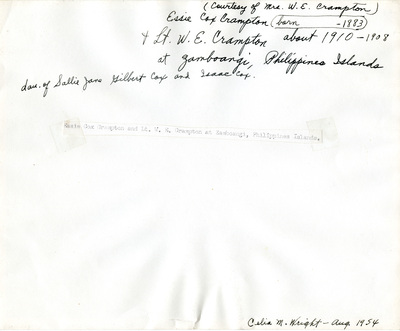 (Courtesy of Mrs. W. E. Crampton)
Essie Cox Crampton (born -1883)
& Lt. W. E. Crampton about 1910-1908
at Zamboangi, Philippines Islands
dau. of Sallie Jane Gilbert Cox and Isaac Cox.
Essie Cox Crampton and Lt. W. E. Crampton at Zamboangi, Philippine Islands.
Celia M. Wright - Aug. 1954